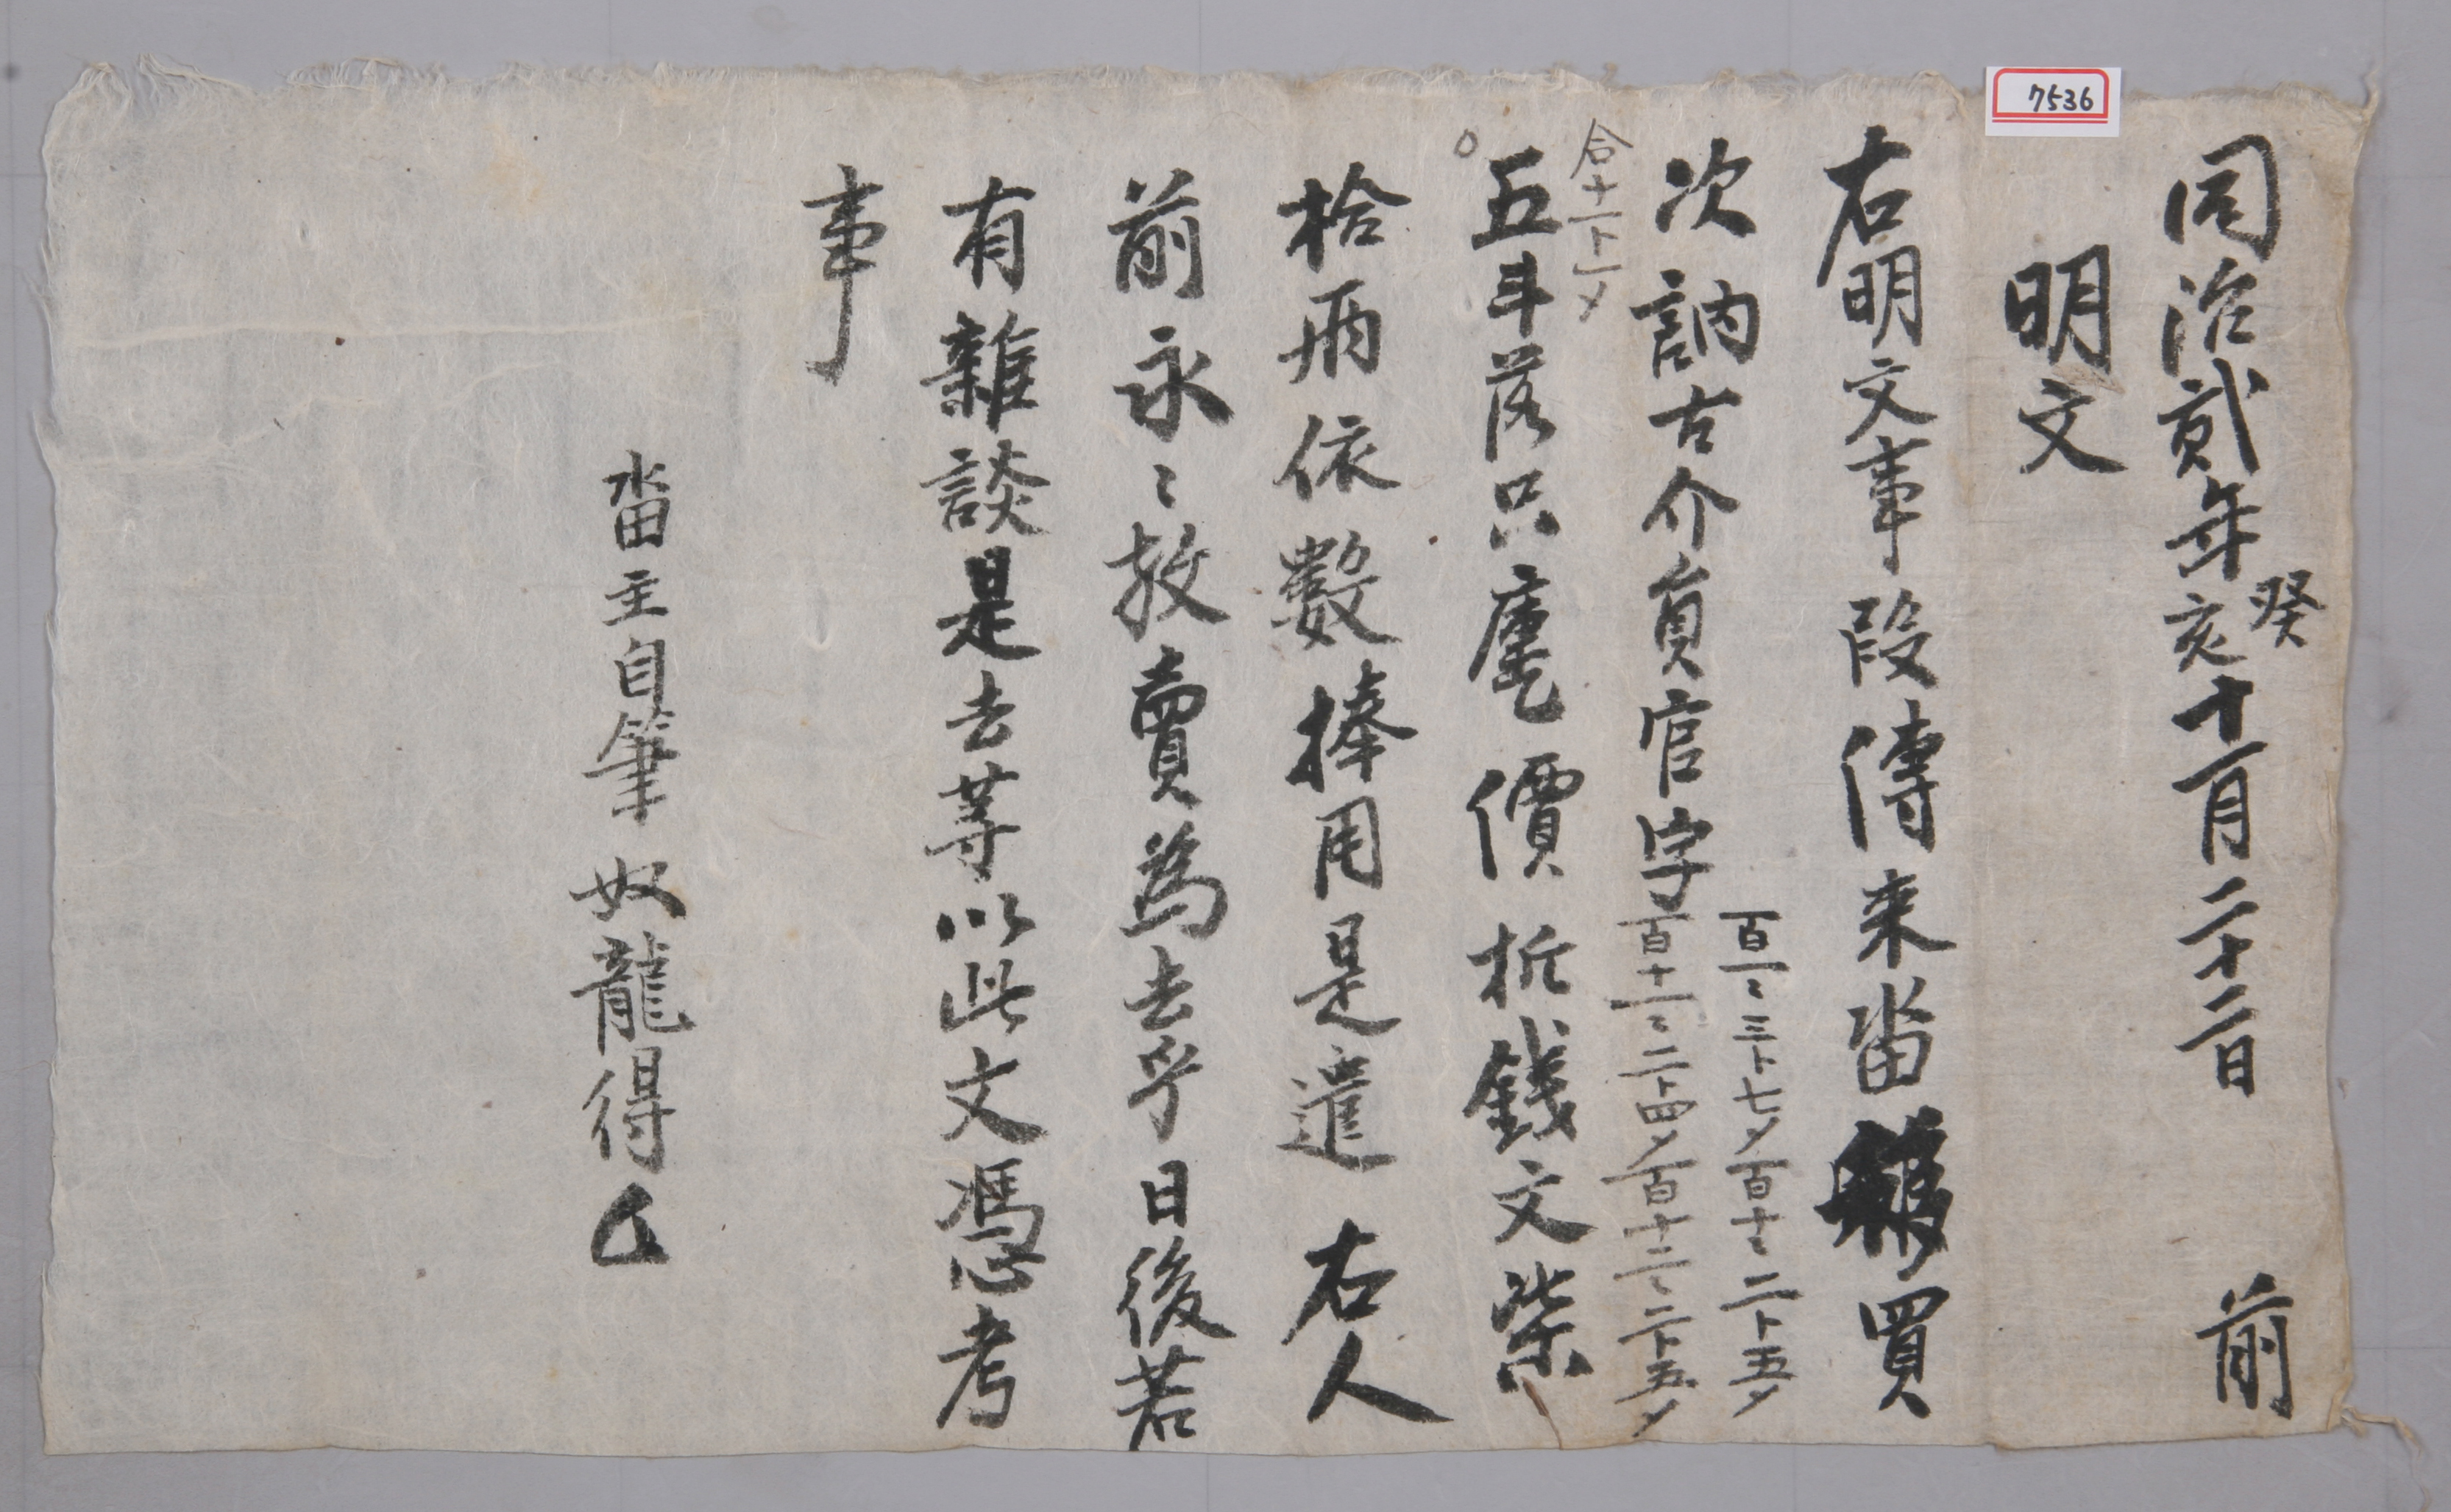 7536
同治貳年癸亥十一月二十二日 前
明文
右明文事段傳来畓買
次訥古介員官字
百一ミ三卜七夕百十ミ二卜五夕
百十一ミ二卜四夕百十二ミ二卜五夕
合十一卜一夕
五斗落只庫乙價折錢文柒
拾兩依數捧用是遣 右人
前永ミ放賣為去乎日後若
有雜談是去等以此文憑考
事
畓主自筆 奴龍得